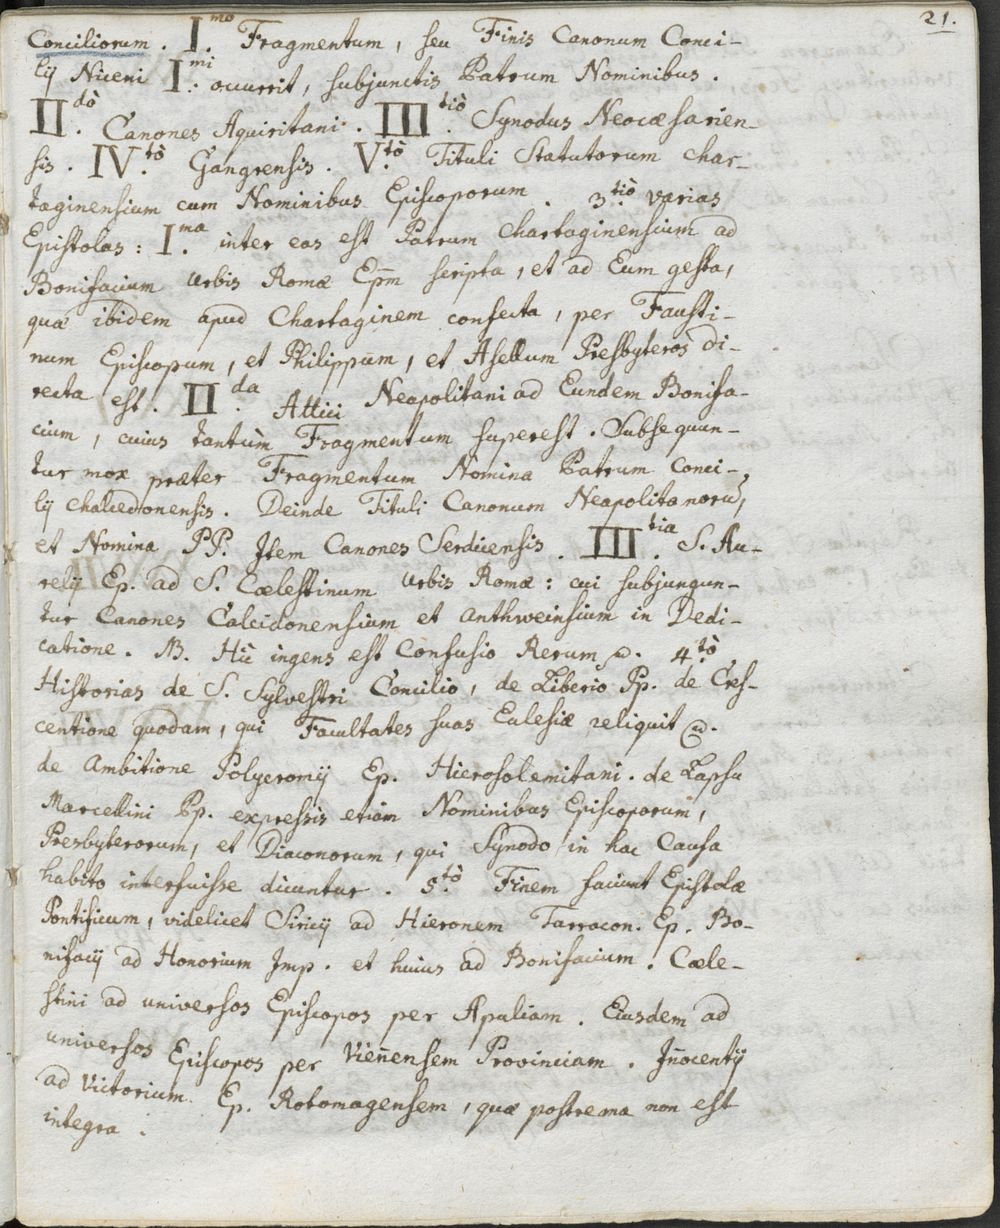 21.
Conciliorum. I.mo Fragmentum, seu Finis Canonum Conci-
lij Niceni I.mi occurrit, subjunctis Patrum Nominibus.
II.dò Canones Aquiritani. III.tiò Synodus Neocæsarien-
sis. IV.tò Gangrensis. V.tò Tituli Statutorum Char-
taginensium cum Nominibus Episcoporum. 3.tiò varias
Epistolas: I.ma inter eas est Patrum Chartaginensium ad
Bonifacium Urbis Romæ Epm̄ scripta, et ad Eum gesta,
quæ ibidem apud Chartaginem confecta, per Fausti-
num Episcopum, et Philippūm, et Asellum Presbyteros di-
recta est. II.da Attici Neapolitani ad Eundem Bonifa-
cium, cuius tantùm Fragmentum superest. Subsequun-
tur mox præter Fragmentum Nomina Patrum Conci-
lij Chalcedonensis. Deinde Tituli Canonum Neapolitanorū,
et Nomina PP. Item Canones Serdicensis. III.tia S. Au-
relij Ep. ad S. Cœlestinum Urbis Romæ: cui subjungun-
tur Canones Calcidonensium et Anthweinsium in Dedi-
catione. NB. Hic ingens est Confusio Rerum. 4.tò
Historias de S. Sylvestri Concilio, de Liberio Pp. de Cres-
centione quodam, qui Facultates suas Eclesiæ reliquit
de Ambitione Polycromij Ep. Hierosolemitani. de Lapsu
Marcellini Pp. expressis etiam Nominibus Episcoporum,
Presbyterorum, et Diaconorum, qui Synodo in hac Causa
habito interfuisse dicuntur. 5.tò Finem faciunt Epistolæ
Pontificum, videlicet Siricij ad Hieronem Tarracon. Ep. Bo-
nifacij ad Honorium Imp. et huius ad Bonifacium. Cœle-
stini ad universos Episcopos per Apuliam. Eiusdem ad
universos Episcopos per Vien̄ensem Provinciam. In̄ocentij
ad Victorium Ep. Rotomagensem, quæ postrema non est
integra.